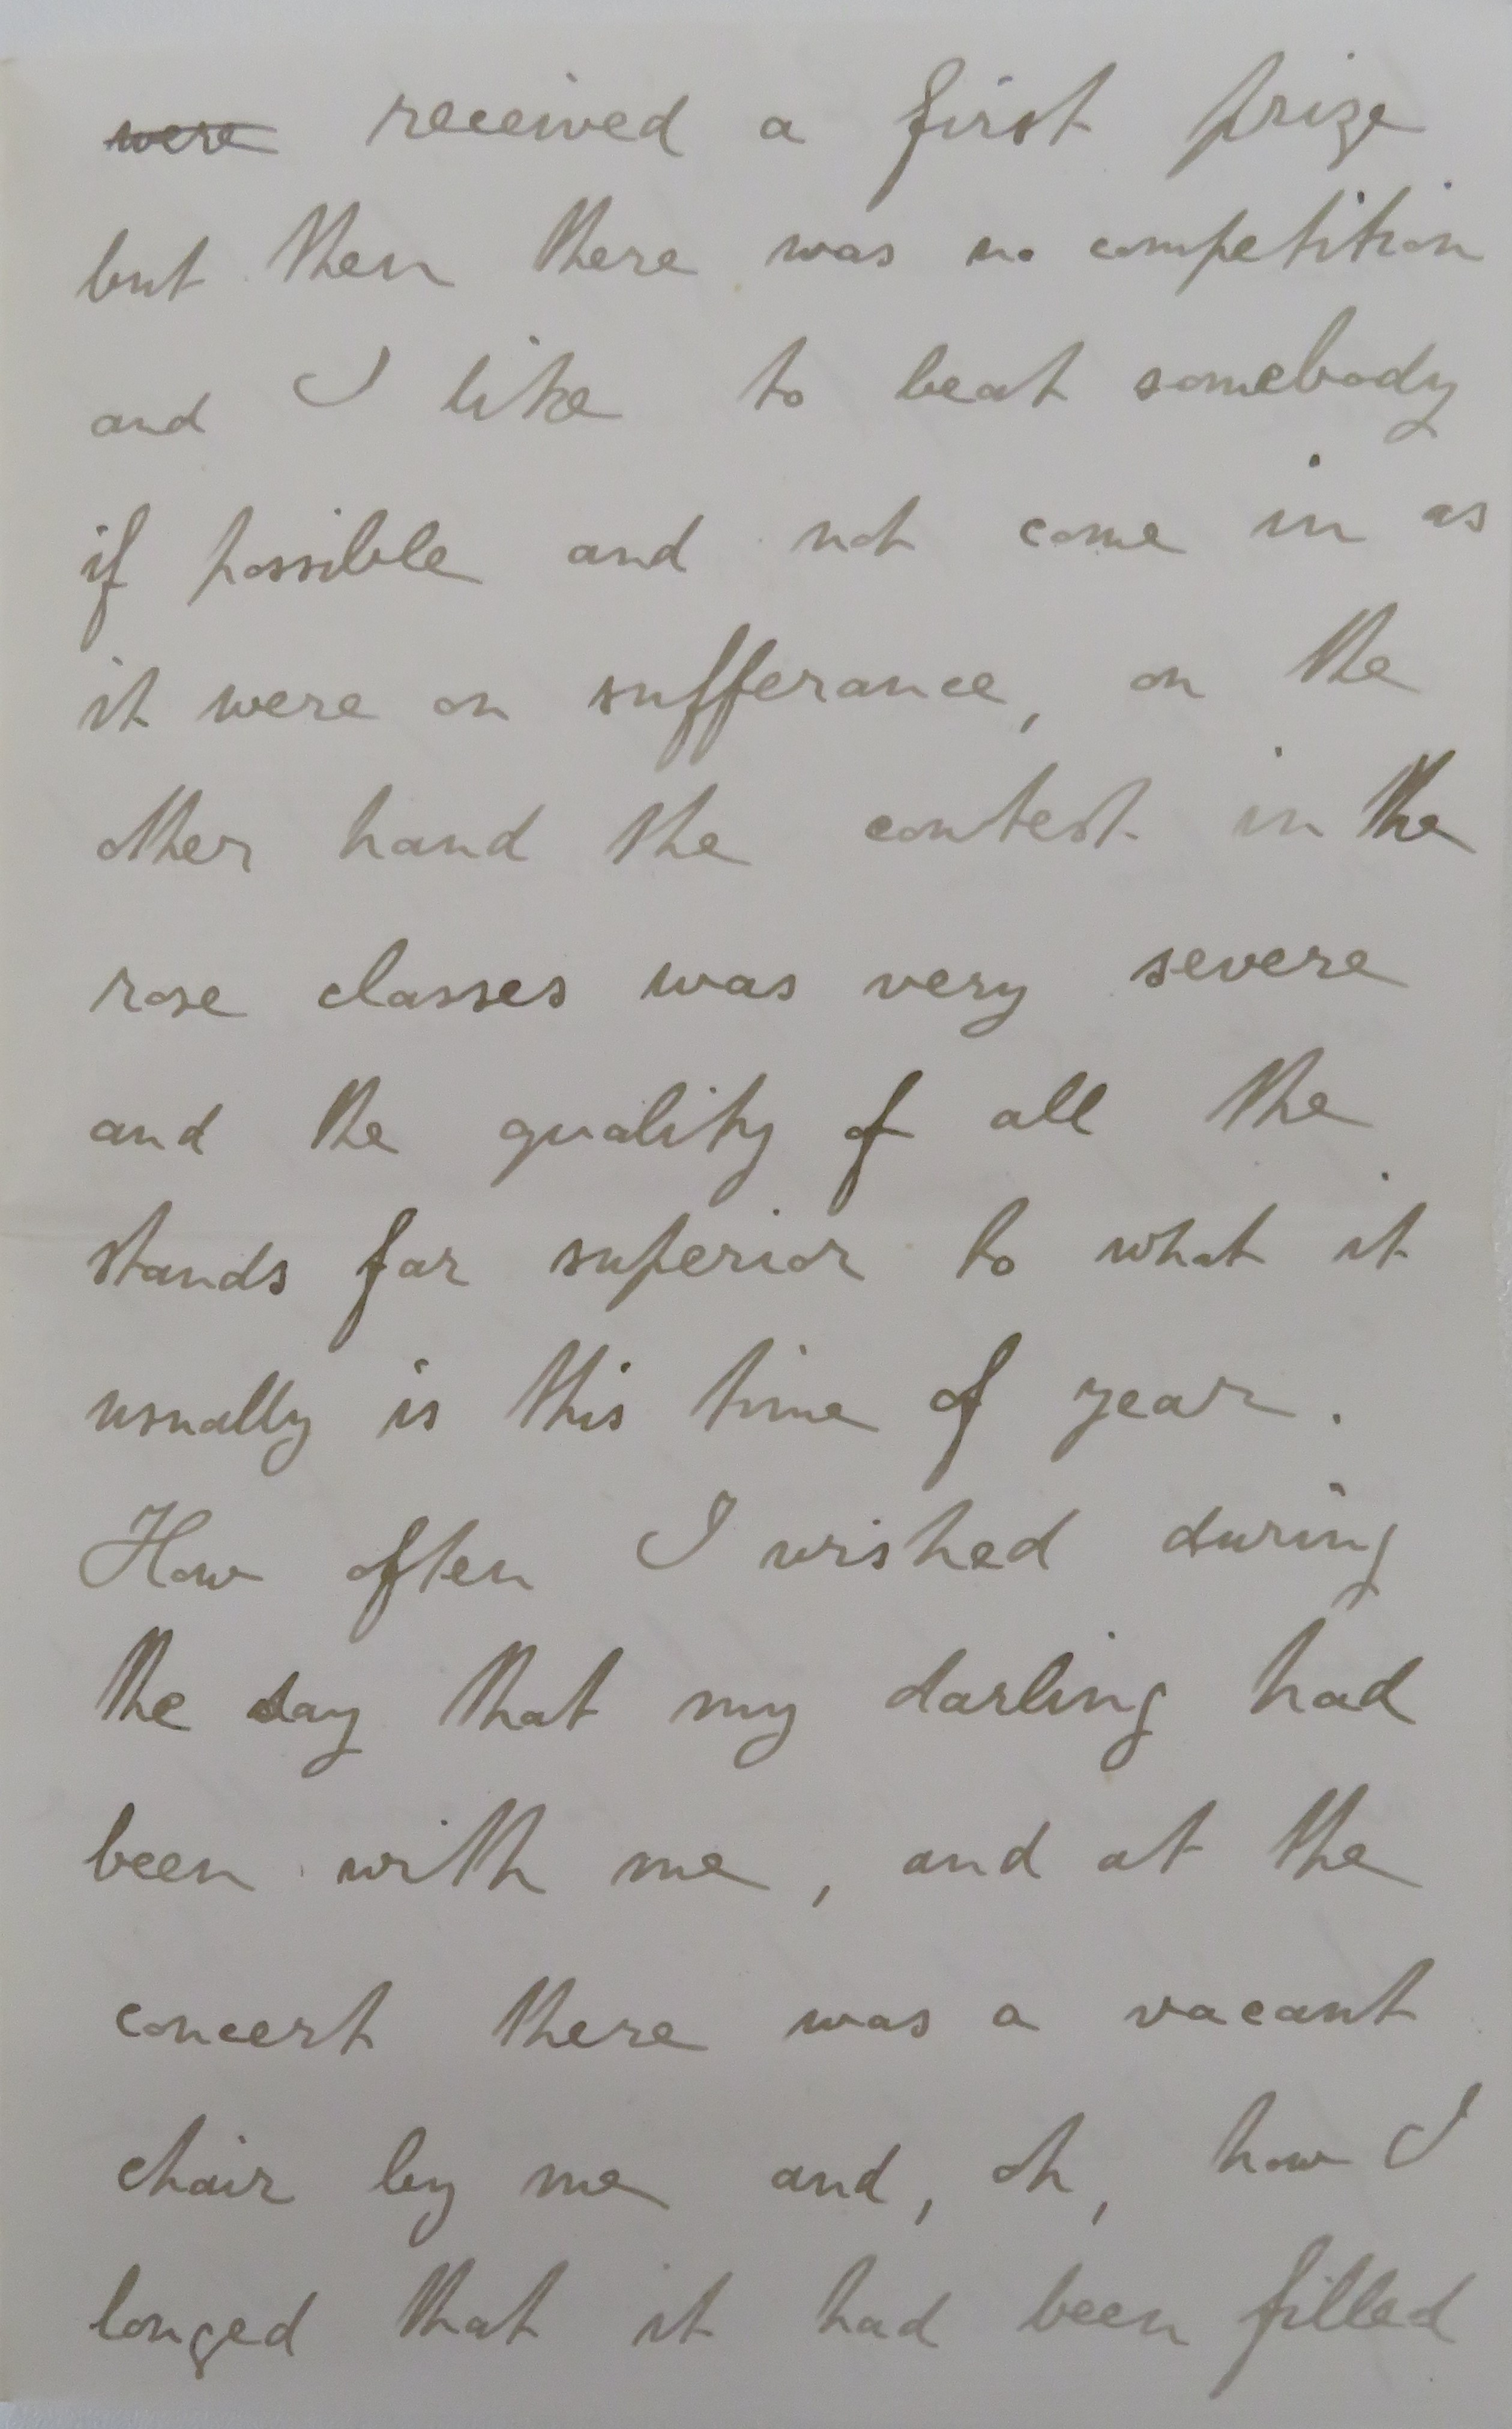 were received a first prize
but then there was no competition
and I like to beat somebody
if possible and not come in as
it were on sufferance, on the
other hand the contest in the
rose classes was very severe
and the quality of all the
stands far superior to what it
usually is this time of year.
How often I wished during
the day that my darling had
been with me, and at the
concert there was a vacant
chair by me and, oh, how I
longed that it had been filled